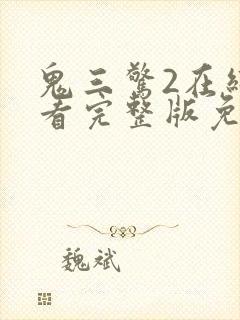 鬼三驚2在線
看完整版免
魏斌